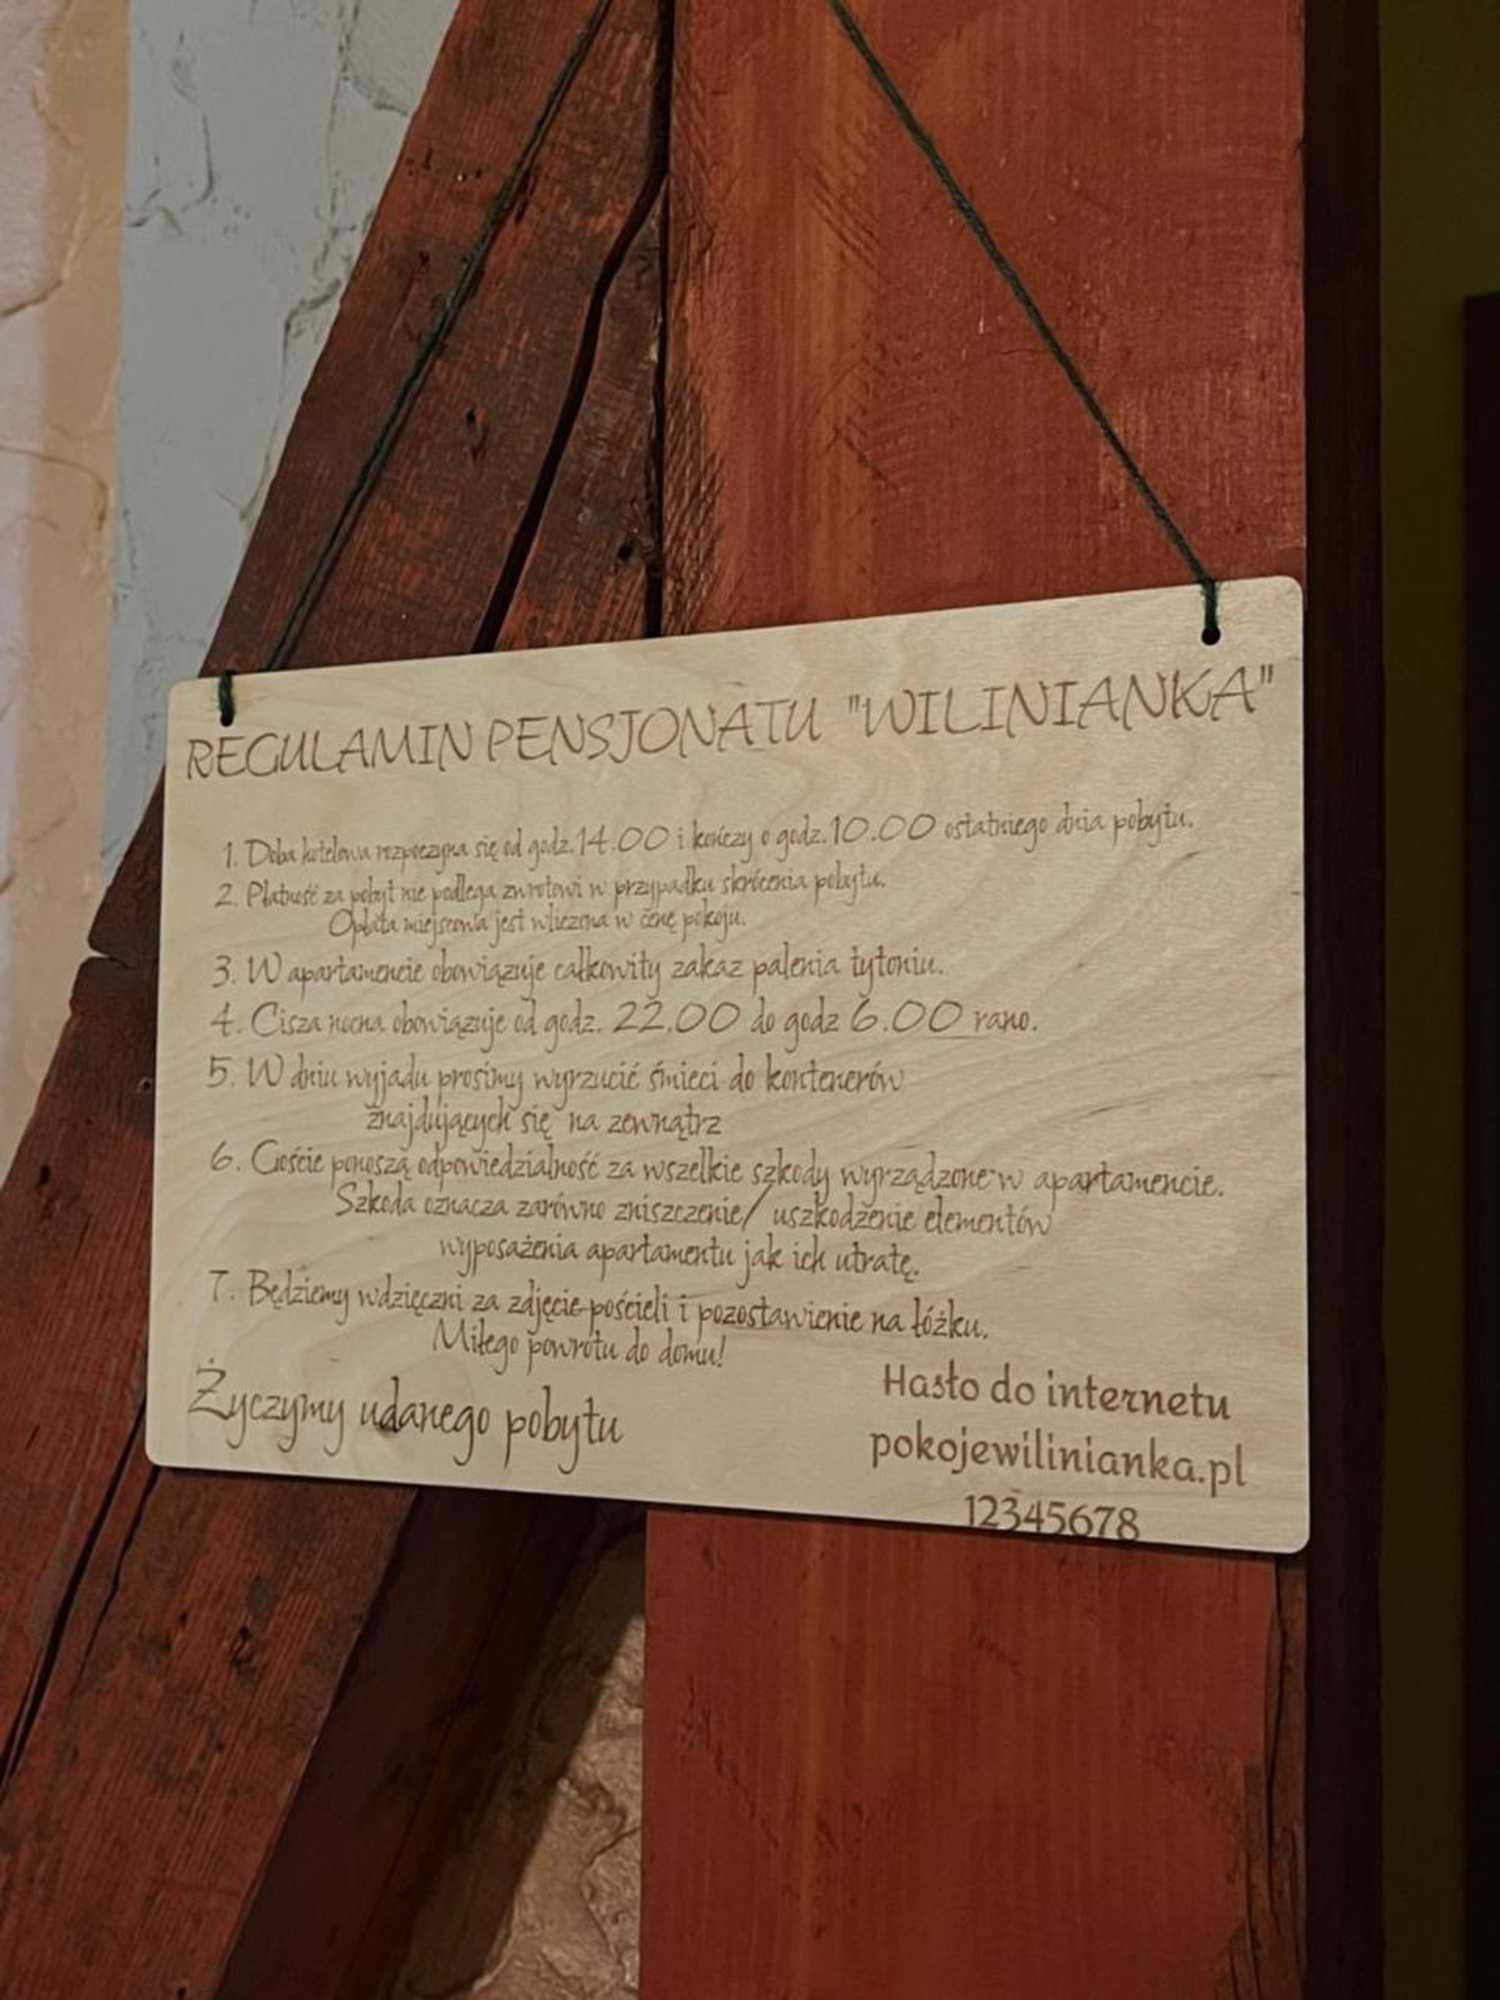 REGULAMIN PENSJONATU "WILINIANKA"
1. Doba hotelowa rozpoczyna się od godz.14.00 i kończy o godz.10.00 ostatniego dnia pobytu.
2. Płatność za pobyt nie podlega zwrotowi w przypadku skrócenia pobytu.
Opłata miejscowa jest wliczona w cenę pokoju.
3. W apartamencie obowiązuje całkowity zakaz palenia tytoniu.
4. Cisza nocna obowiązuje od godz. 22.00 do godz 6.00 rano.
5. W dniu wyjadu prosimy wyrzucić śmieci do kontenerów
znajdujących się na zewnątrz
6. Goście ponoszą odpowiedzialność za wszelkie szkody wyrządzone w apartamencie.
Szkoda oznacza zarówno zniszczenie/ uszkodzenie elementów
wyposażenia apartamentu jak ich utratę.
7. Będziemy wdzięczni za zdjęcie pościeli i pozostawienie na łóżku.
Miłego powrotu do domu!
Życzymy udanego pobytu
Hasło do internetu
pokojewilinianka.pl
12345678